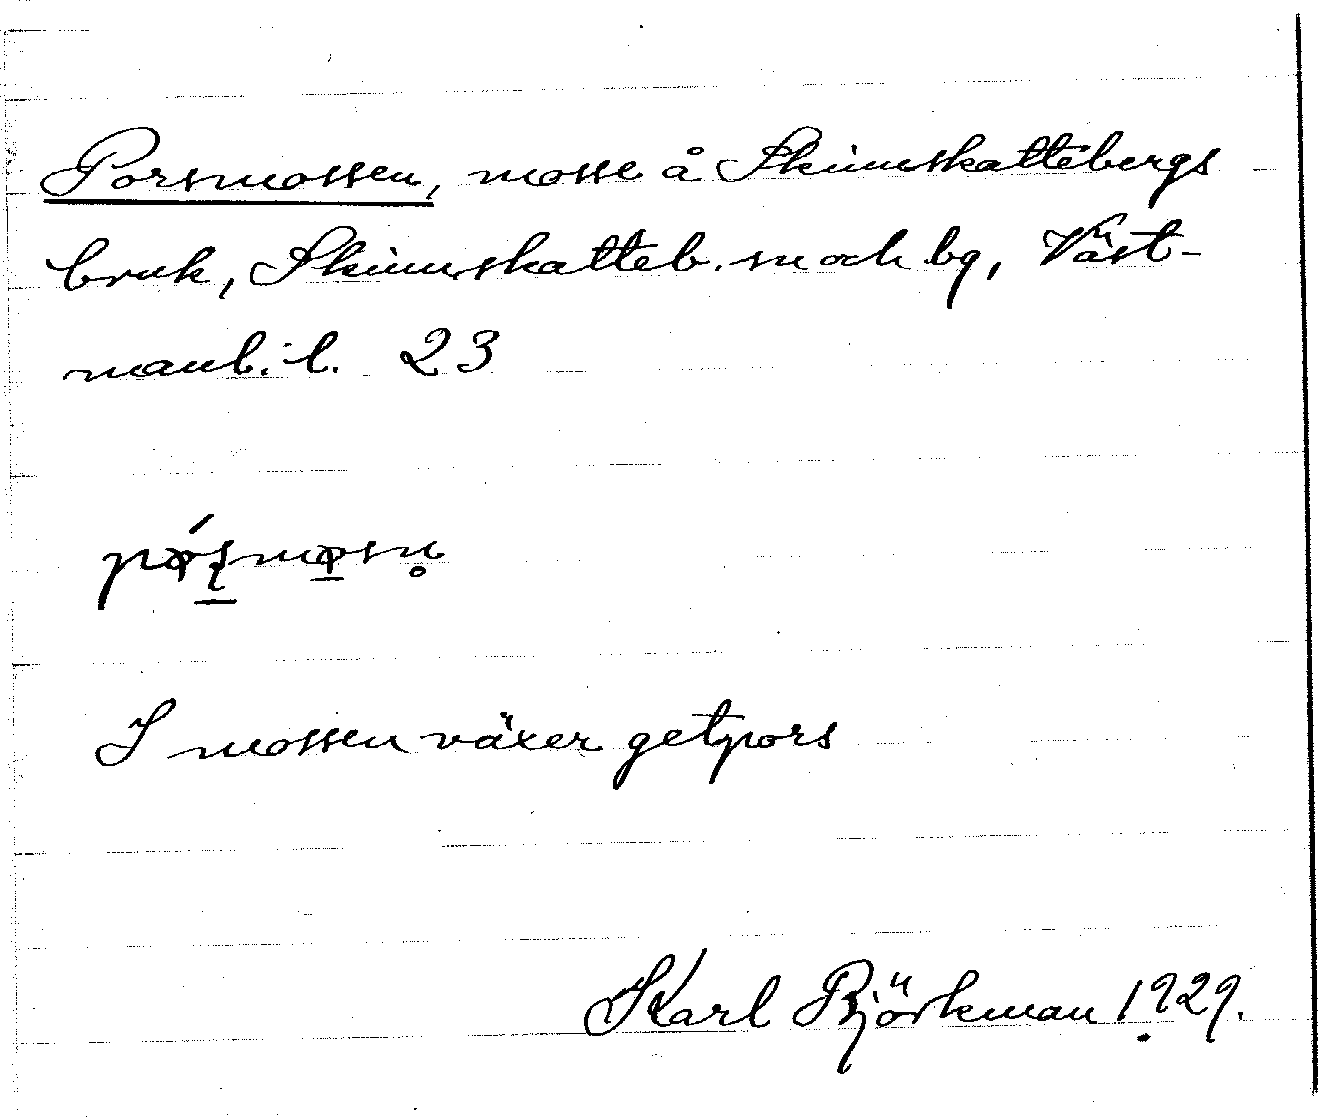 Porsmossen, mosse å Skinnskattebergs
bruk, Skinnskatteb. sn och bg, Väst-
manl. l. 23
I mossen växer getpors
Karl Björkman 1929.